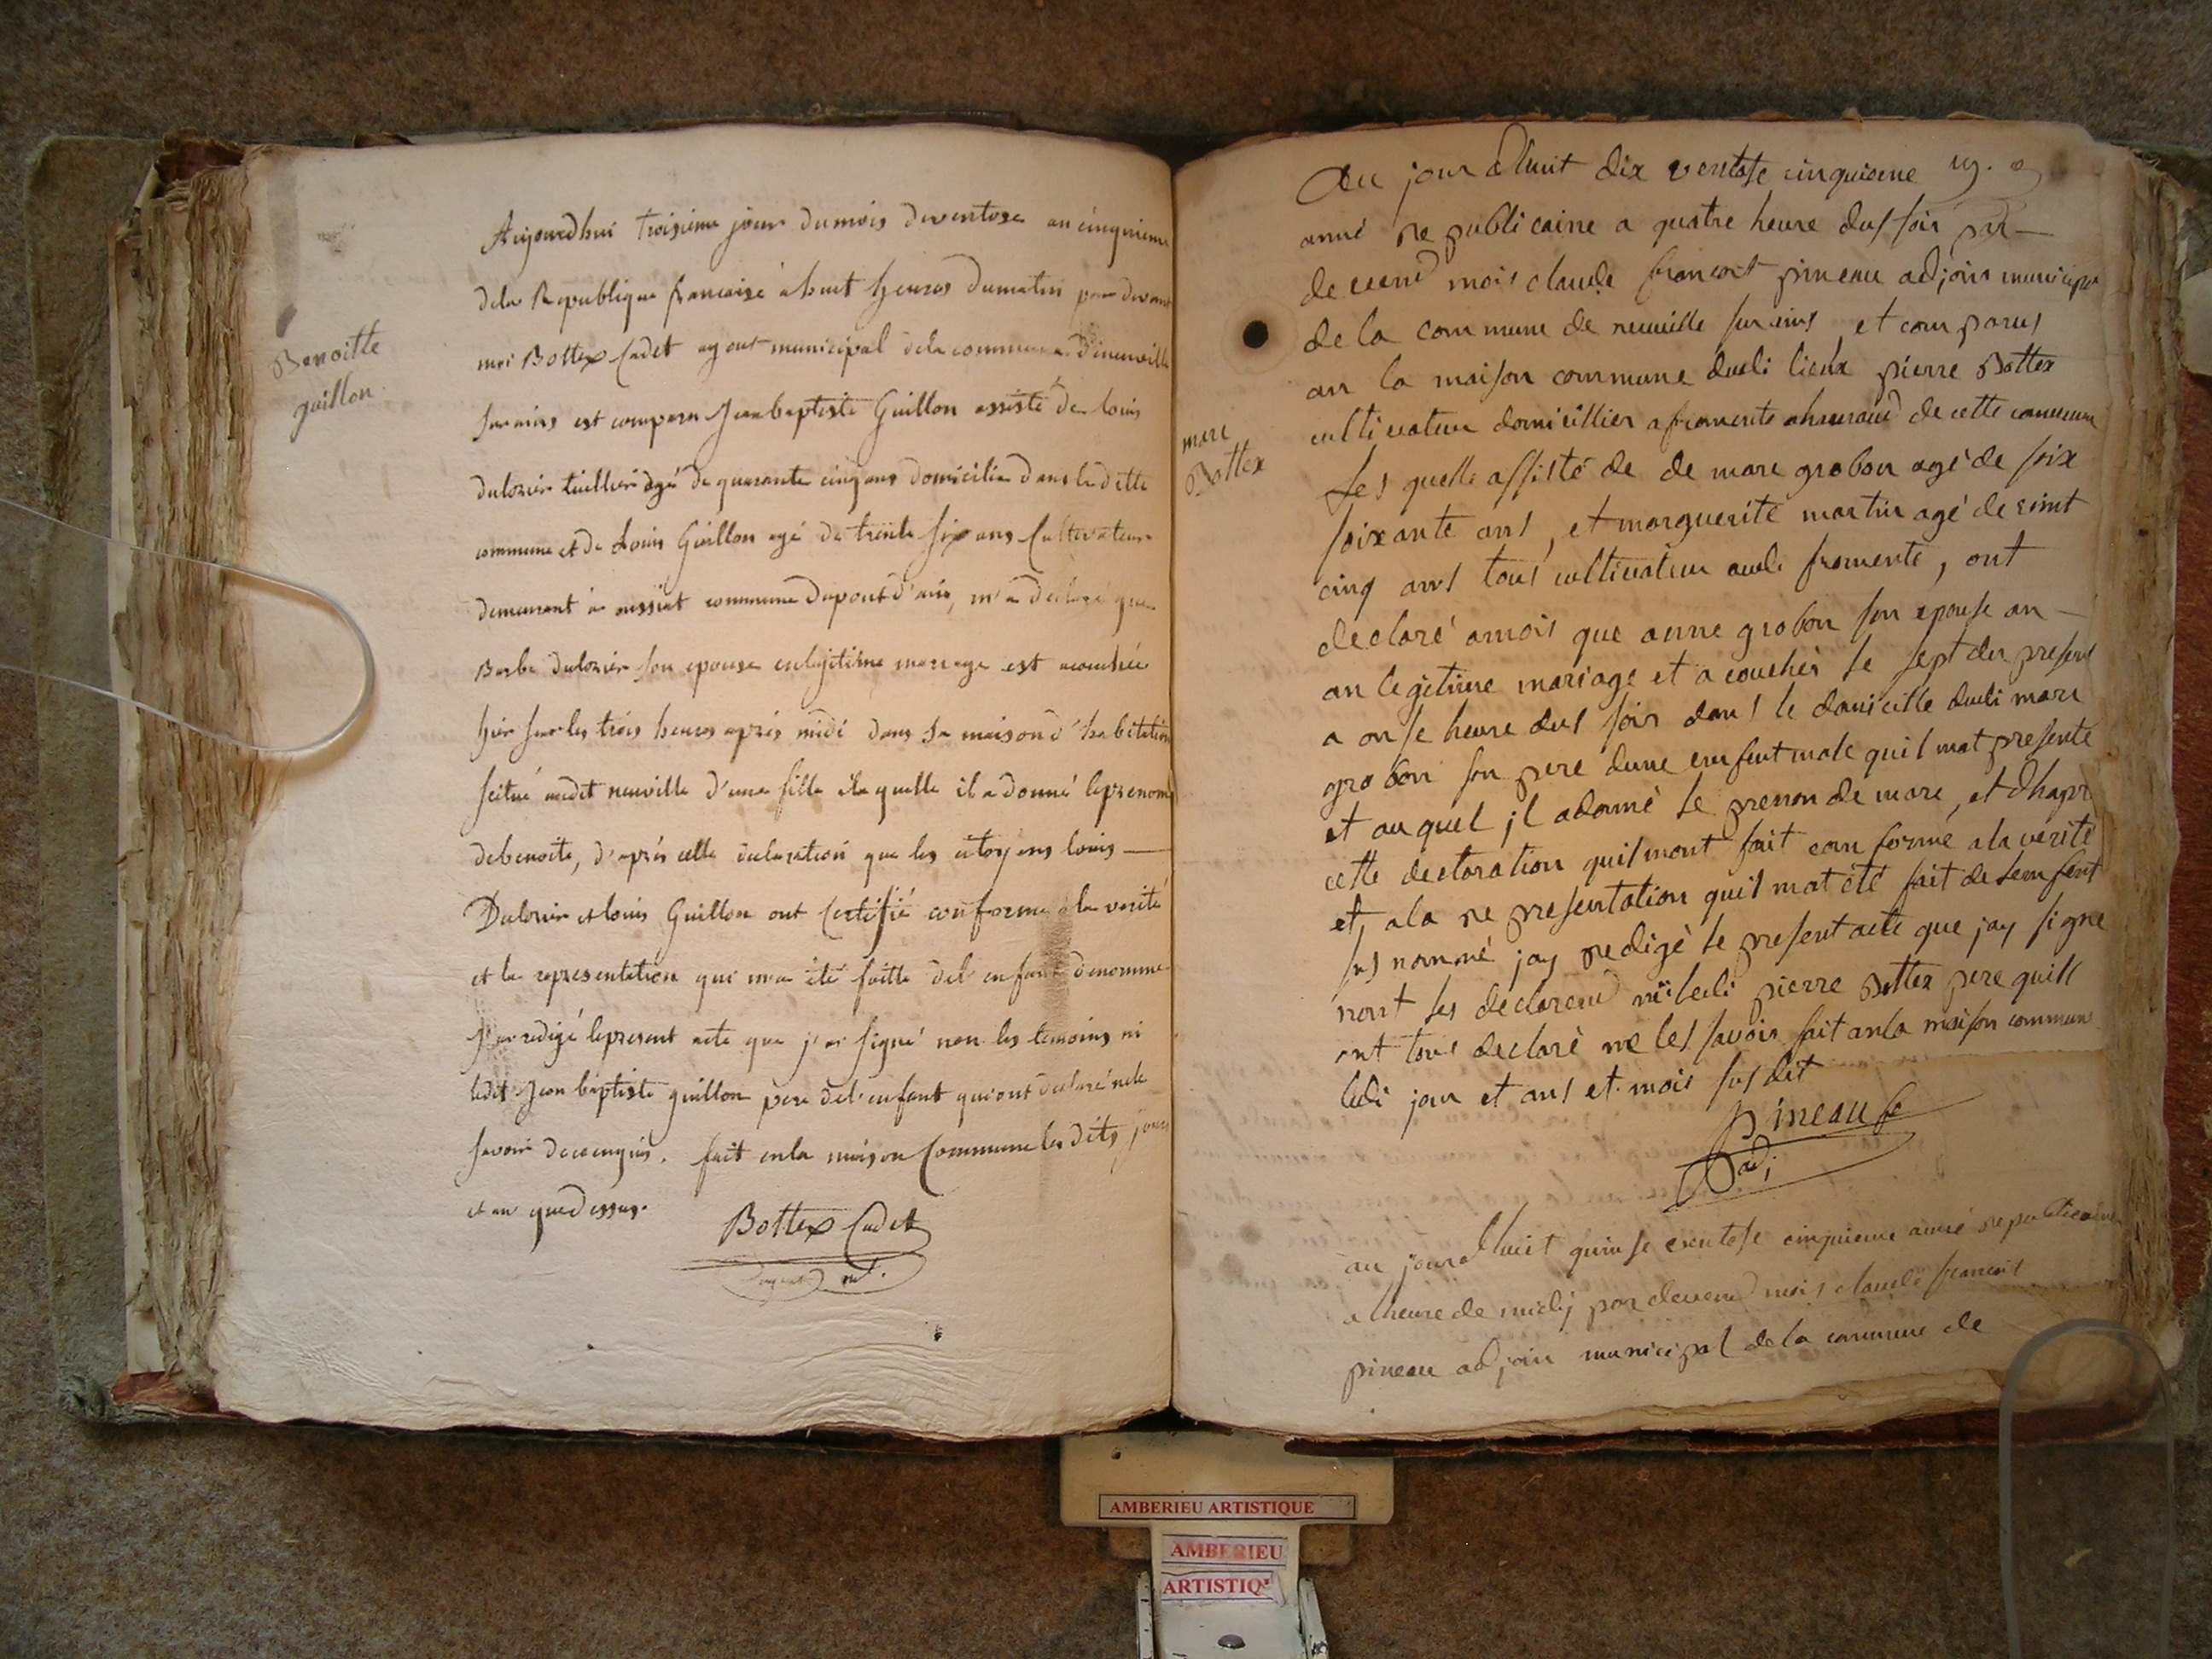 Benoitte
guillon
Aujourdhui troisieme jour du mois de ventose an cinquieme
dela Republique francaise à huit heures du matin par devant
moi Bottex Cadet agent municipal dela commune de neuville
sur ains est comparu Jean baptiste Guillon assisté de louis
Dulorier tuillier agé de quarante cinq ans domicilié dans la ditte
commune et de Louis Guillon agé de trente six ans Cultivateur
demeurant à oussiat commune du pont d'ain, m'a declaré que
Barbe dulorier son epouse en legitime mariage est acouchée
hier sur les trois heures après midi dans sa maison d'habitation
scitué audit neuville d'une fille à la quelle il a donné le prenom
de benoite, d'après cette declaration que les citoyens louis —
Dulorier et louis Guillon ont Certifié conforme à la verité
et la representation qui m'a été faitte del'enfant denommé
J'ai redigé le present acte que j'ai signé non les temoins ni
ledit Jean baptiste guillon pere del'enfant qui ont declaré ne le
savoir de ce enquis. fait en la maison Commune les dits jour
et an que dessus.
Bottex Cadet
agent
marc
Bottex
Au jour dhuit dix ventose cinquieme
anné re publicaine a quatre heure dus soir par —
devend mois claude francois pineau adjoin municipal
de la commune de neuville sur ains et comparus
an la maison commune dudi lieux pierre Bottex
cultivateur domicillier a fromente ahameaud de cette commune
Les quelle assisté de de marc grobon agé de soix
soixante ans, et marguerite martin agé de vint
cinq ans tous cultivateur audi fromente, ont
declaré amois que anne grobon son epouse an —
an legitime mariage et a couchés le sept du present
a onse heure dus soir dans le domicille dudi marc
grobon son pere dune enfent male quil mat presente
et au quel jl adonné le prenon de marc, et dhapr
cette declaration quil mont fait conforme a la verité
et, ala re presentation quil mat été fait de lenfent
sus nommé jay redigé le present acte que jay signe
nont les declarend ni ledi pierre Bottex pere quill
ont tous declaré ne les savoir fait anla maison commune
ledi jour et ans et mois sus dit
pineau
adj
au jourdhuit quinse ventose cinquieme anné republicaine
a lheure de midij par devend mois claude francois
pineau adjoin municipal de la commune de
AMBERIEU ARTISTIQUE
AMBERIEU
ARTISTIQ